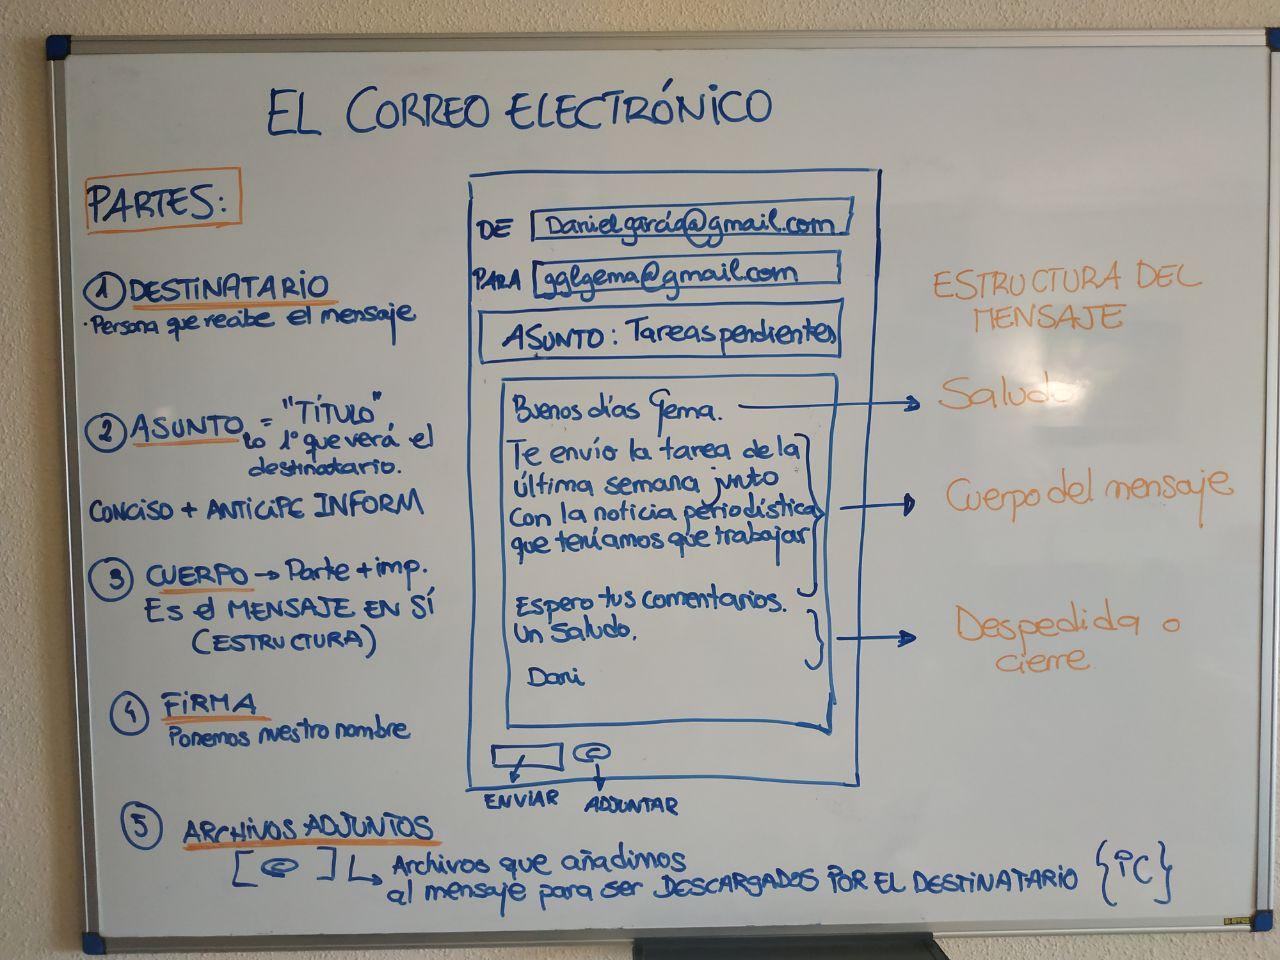 EL CORREO ELECTRÓNICO
PARTES:
① DESTINATARIO
· Persona que recibe el mensaje
② ASUNTO = "TÍTULO"
lo 1º que verá el
destinatario.
CONCISO + ANTICIPE INFORM
③ CUERPO → Parte + imp.
ES el MENSAJE EN SÍ
(ESTRUCTURA)
④ FIRMA
Ponemos nuestro nombre
⑤ ARCHIVOS ADJUNTOS
Archivos que añadimos
al mensaje para ser DESCARGADOS POR EL DESTINATARIO
DE Danielgarcía@gmail.com
PARA gglgema@gmail.com
ASUNTO: Tareas pendientes
Buenos días Gema.
Te envío la tarea de la
última semana junto
con la noticia periodística
que teníamos que trabajar
Espero tus comentarios.
Un Saludo.
Dani
ENVIAR
ADJUNTAR
ESTRUCTURA DEL
MENSAJE
Saludo
Cuerpo del mensaje
Despedida o
cierre